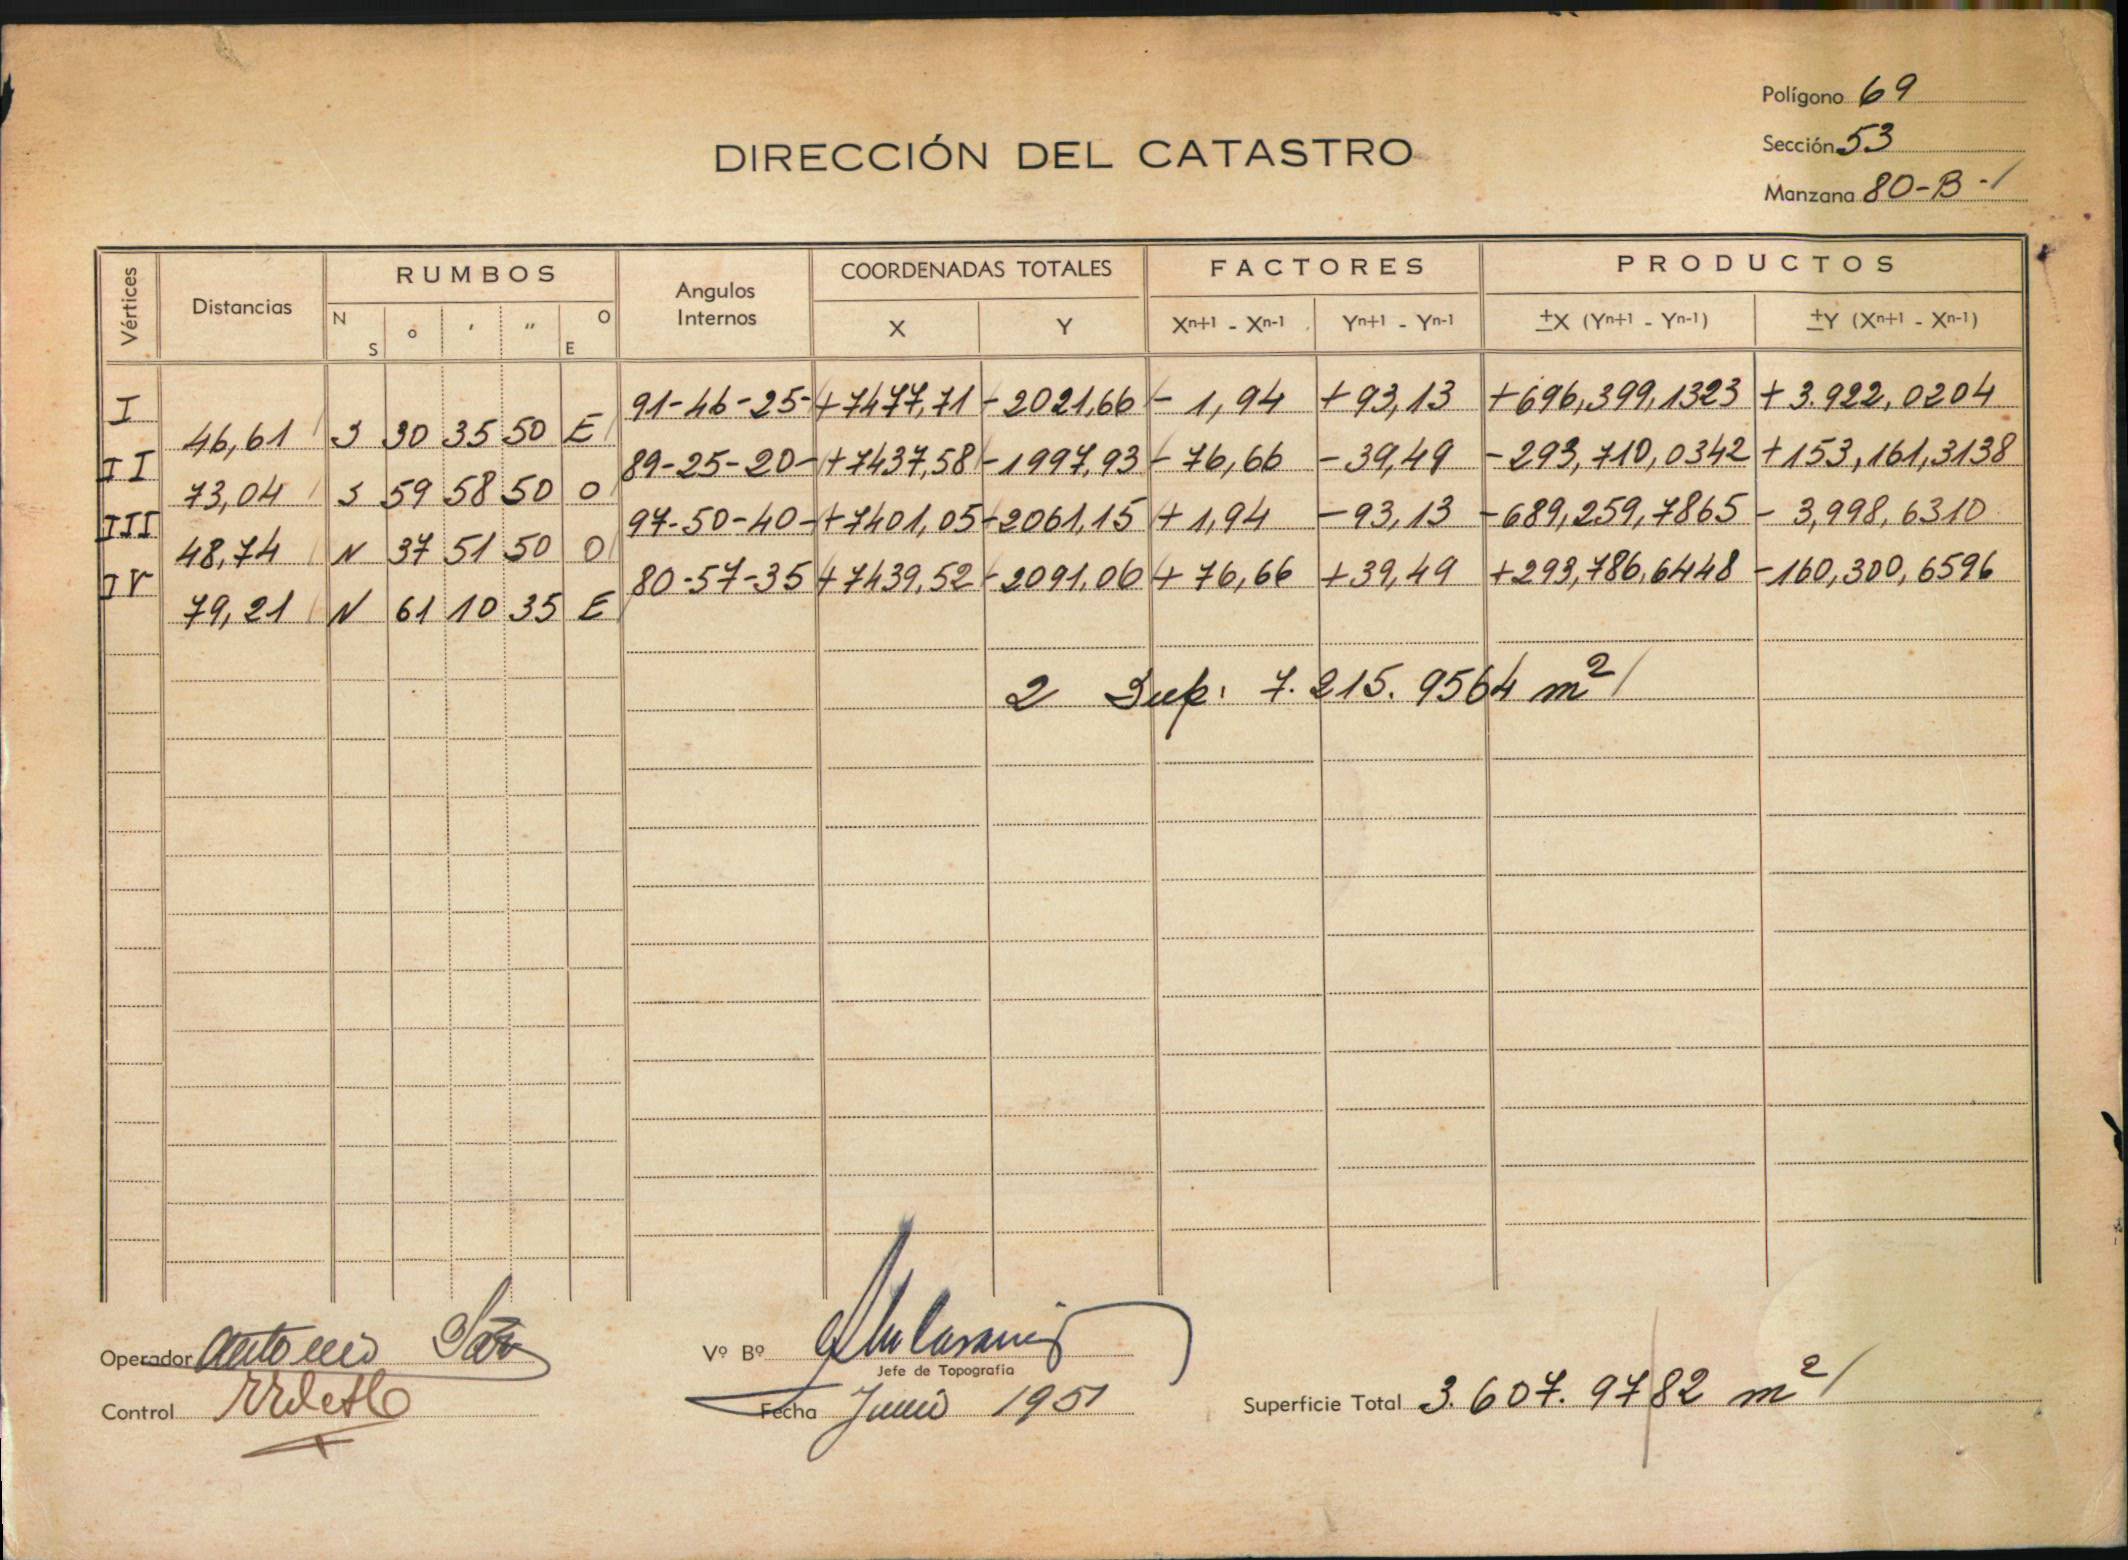 Polígono 69
DIRECCIÓN DEL CATASTRO
Sección 53
Manzana 80-B-1
Vértices Distancias RUMBOS N S ° ' " O E Angulos Internos COORDENADAS TOTALES X Y FACTORES Xn+1 - Xn-1 Yn+1 - Yn-1 PRODUCTOS ±X (Yn+1 - Yn-1) ±Y (Xn+1 - Xn-1)
I 91-46-25- +7477,71 -2021,66 - 1,94 +93,13 +696,399,1323 +3.922,0204
46,61 S 30 35 50 E
II 89-25-20- +7437,58 -1997,93 - 76,66 -39,49 -293,710,0342 +153,161,3138
73,04 S 59 58 50 O
III 97-50-40- +7401,05 -2061,15 + 1,94 -93,13 -689,259,7865 - 3,998,6310
48,74 N 37 51 50 O
IV 80-57-35 +7439,52 -2091,06 + 76,66 +39,49 +293,786,6448 -160,300,6596
79,21 N 61 10 35 E
2 Sup: 7.215.9564 m²
Operador Antonio
Vº Bº
Jefe de Topografía
Control
Fecha Junio 1951
Superficie Total 3.607.9782 m²